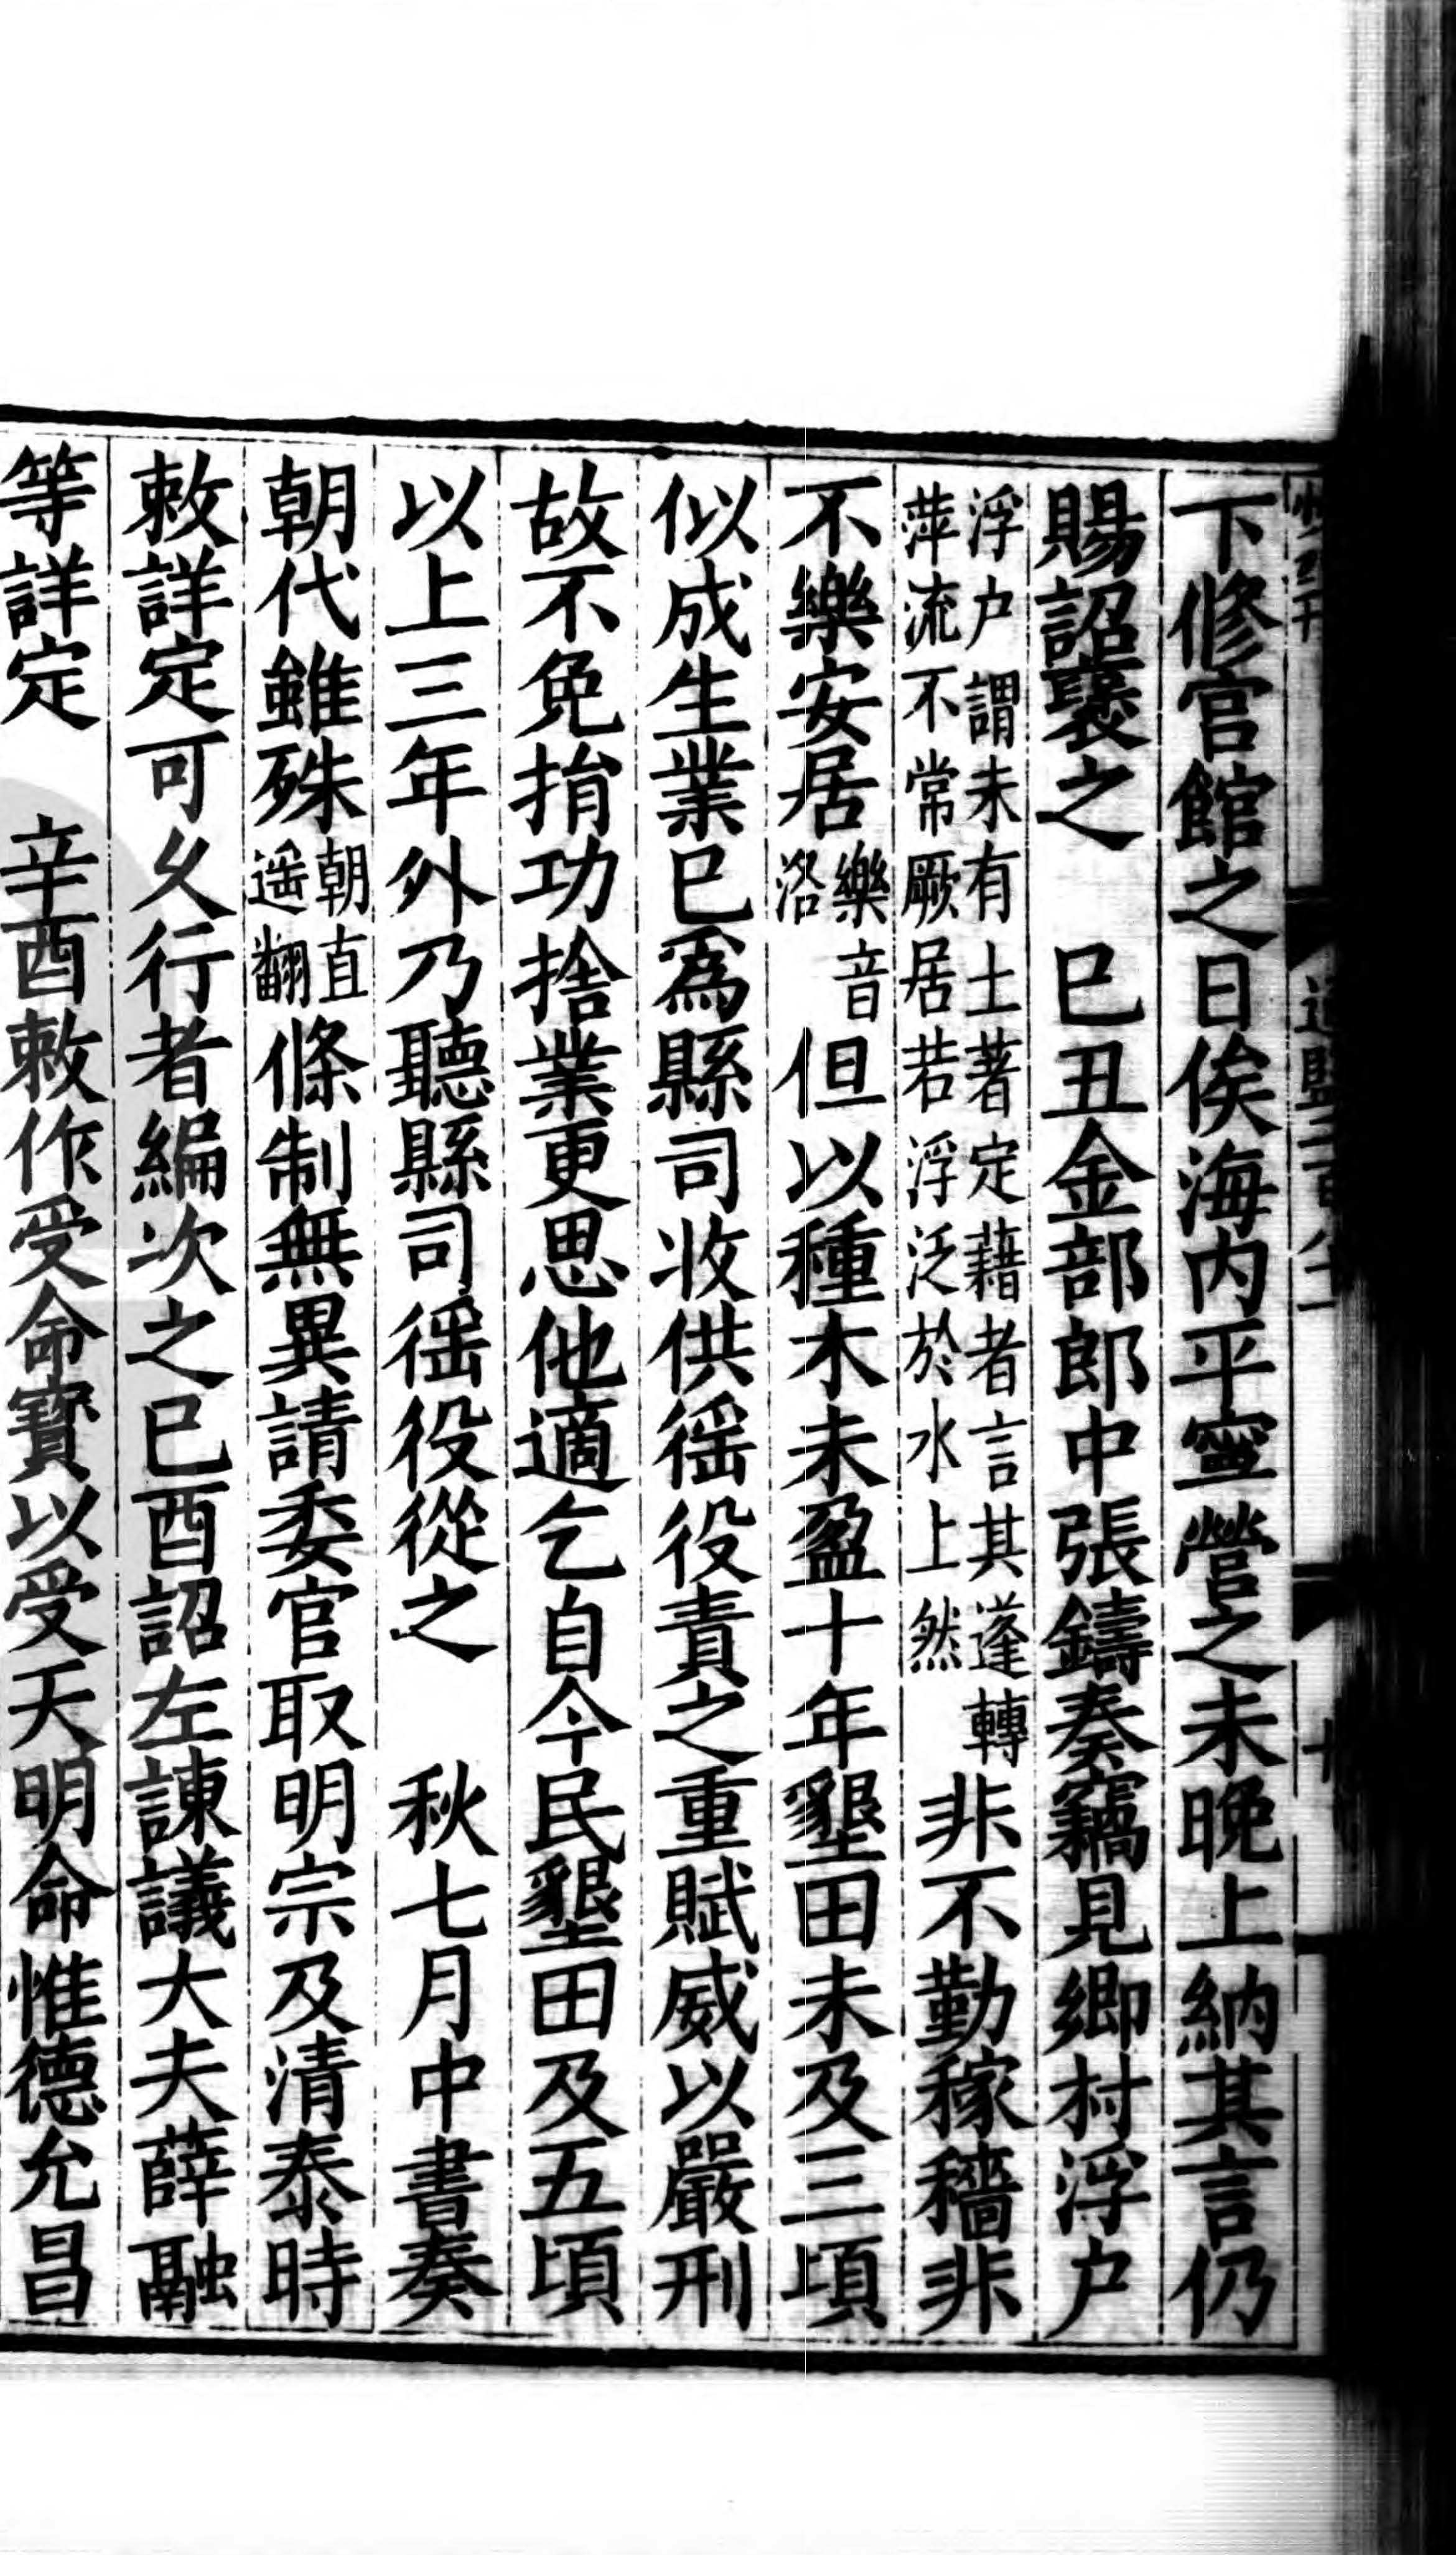 下修宫館之日俟海内平寧營之未晚上納其言仍
賜詔襃之　己丑金部郎中張鑄奏竊見鄉村浮户
浮户謂未有土著定藉者言其蓬轉萍流不常厥居若浮泛於水上然非不勤稼穡非
不樂安居樂音洛但以種木未盈十年墾田未及三頃
似成生業已爲縣司收供徭役責之重賦威以嚴刑
故不免捐功捨業更思他適乞自今民墾田及五頃
以上三年外乃聽縣司徭役從之　秋七月中書奏
朝代雖殊朝直遥翻條制無異請委官取明宗及清泰時
敕詳定可久行者編次之己酉詔左諫議大夫薛融
等詳定　辛酉敕作受命寶以受天明命惟德允昌